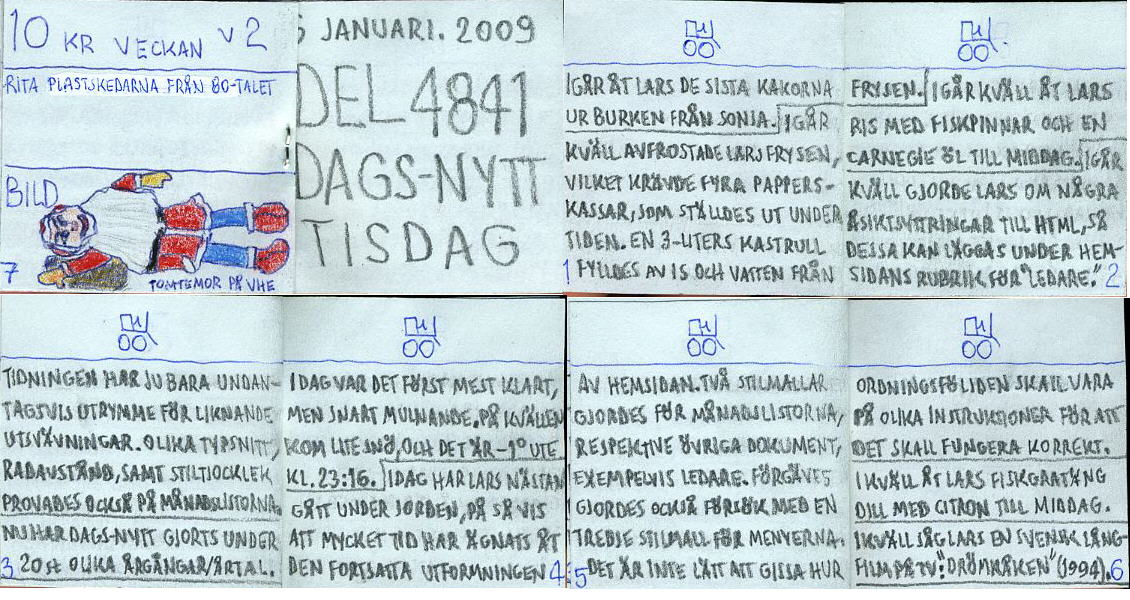 10 KR VECKAN V 2
RITA PLASTSKEDARNA FRÅN 80-TALET
BILD
7
TOMTEMOR PÅ VHE
6 JANUARI. 2009
DEL 4841
DAGS-NYTT
TISDAG
IGÅR ÅT LARS DE SISTA KAKORNA
UR BURKEN FRÅN SONJA. IGÅR
KVÄLL AVFROSTADE LARS FRYSEN,
VILKET KRÄVDE FYRA PAPPERS-
KASSAR, SOM STÄLLDES UT UNDER
TIDEN. EN 3-LITERS KASTRULL
1 FYLLDES AV IS OCH VATTEN FRÅN
FRYSEN. IGÅR KVÄLL ÅT LARS
RIS MED FISKPINNAR OCH EN
CARNEGIE ÖL TILL MIDDAG. IGÅR
KVÄLL GJORDE LARS OM NÅGRA
ÅSIKTSYTTRINGAR TILL HTML, SÅ
DESSA KAN LÄGGAS UNDER HEM-
SIDANS RUBRIK FÖR "LEDARE." 2
TIDNINGEN HAR JU BARA UNDAN-
TAGSVIS UTRYMME FÖR LIKNANDE
UTSVÄVNINGAR. OLIKA TYPSNITT,
RADAVSTÅND, SAMT STILTJOCKLEK
PROVADES OCKSÅ PÅ MÅNADSLISTORNA.
NU HAR DAGS-NYTT GJORTS UNDER
3 20 st OLIKA ÅRGÅNGAR/ÅRTAL.
IDAG VAR DET FÖRST MEST KLART,
MEN SNART MULNANDE. PÅ KVÄLLEN
KOM LITE SNÖ, OCH DET ÄR -1° UTE
KL. 23:16. IDAG HAR LARS NÄSTAN
GÅTT UNDER JORDEN, PÅ SÅ VIS
ATT MYCKET TID HAR ÄGNATS ÅT
DEN FORTSATTA UTFORMNINGEN 4
AV HEMSIDAN. TVÅ STILMALLAR
GJORDES FÖR MÅNADSLISTORNA,
RESPEKTIVE ÖVRIGA DOKUMENT,
EXEMPELVIS LEDARE. FÖRGÄVES
GJORDES OCKSÅ FÖRSÖK MED EN
TREDJE STILMALL FÖR MENYERNA.
5 DET ÄR INTE LÄTT ATT GISSA HUR
ORDNINGSFÖLJDEN SKALL VARA
PÅ OLIKA INSTRUKTIONER FÖR ATT
DET SKALL FUNGERA KORREKT.
IKVÄLL ÅT LARS FISKGRATÄNG
DILL MED CITRON TILL MIDDAG.
IKVÄLL SÅG LARS EN SVENSK LÅNG-
FILM PÅ TV: "DRÖMKÅKEN" (1994). 6